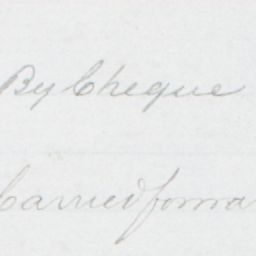 By Cheque
Carried forwa